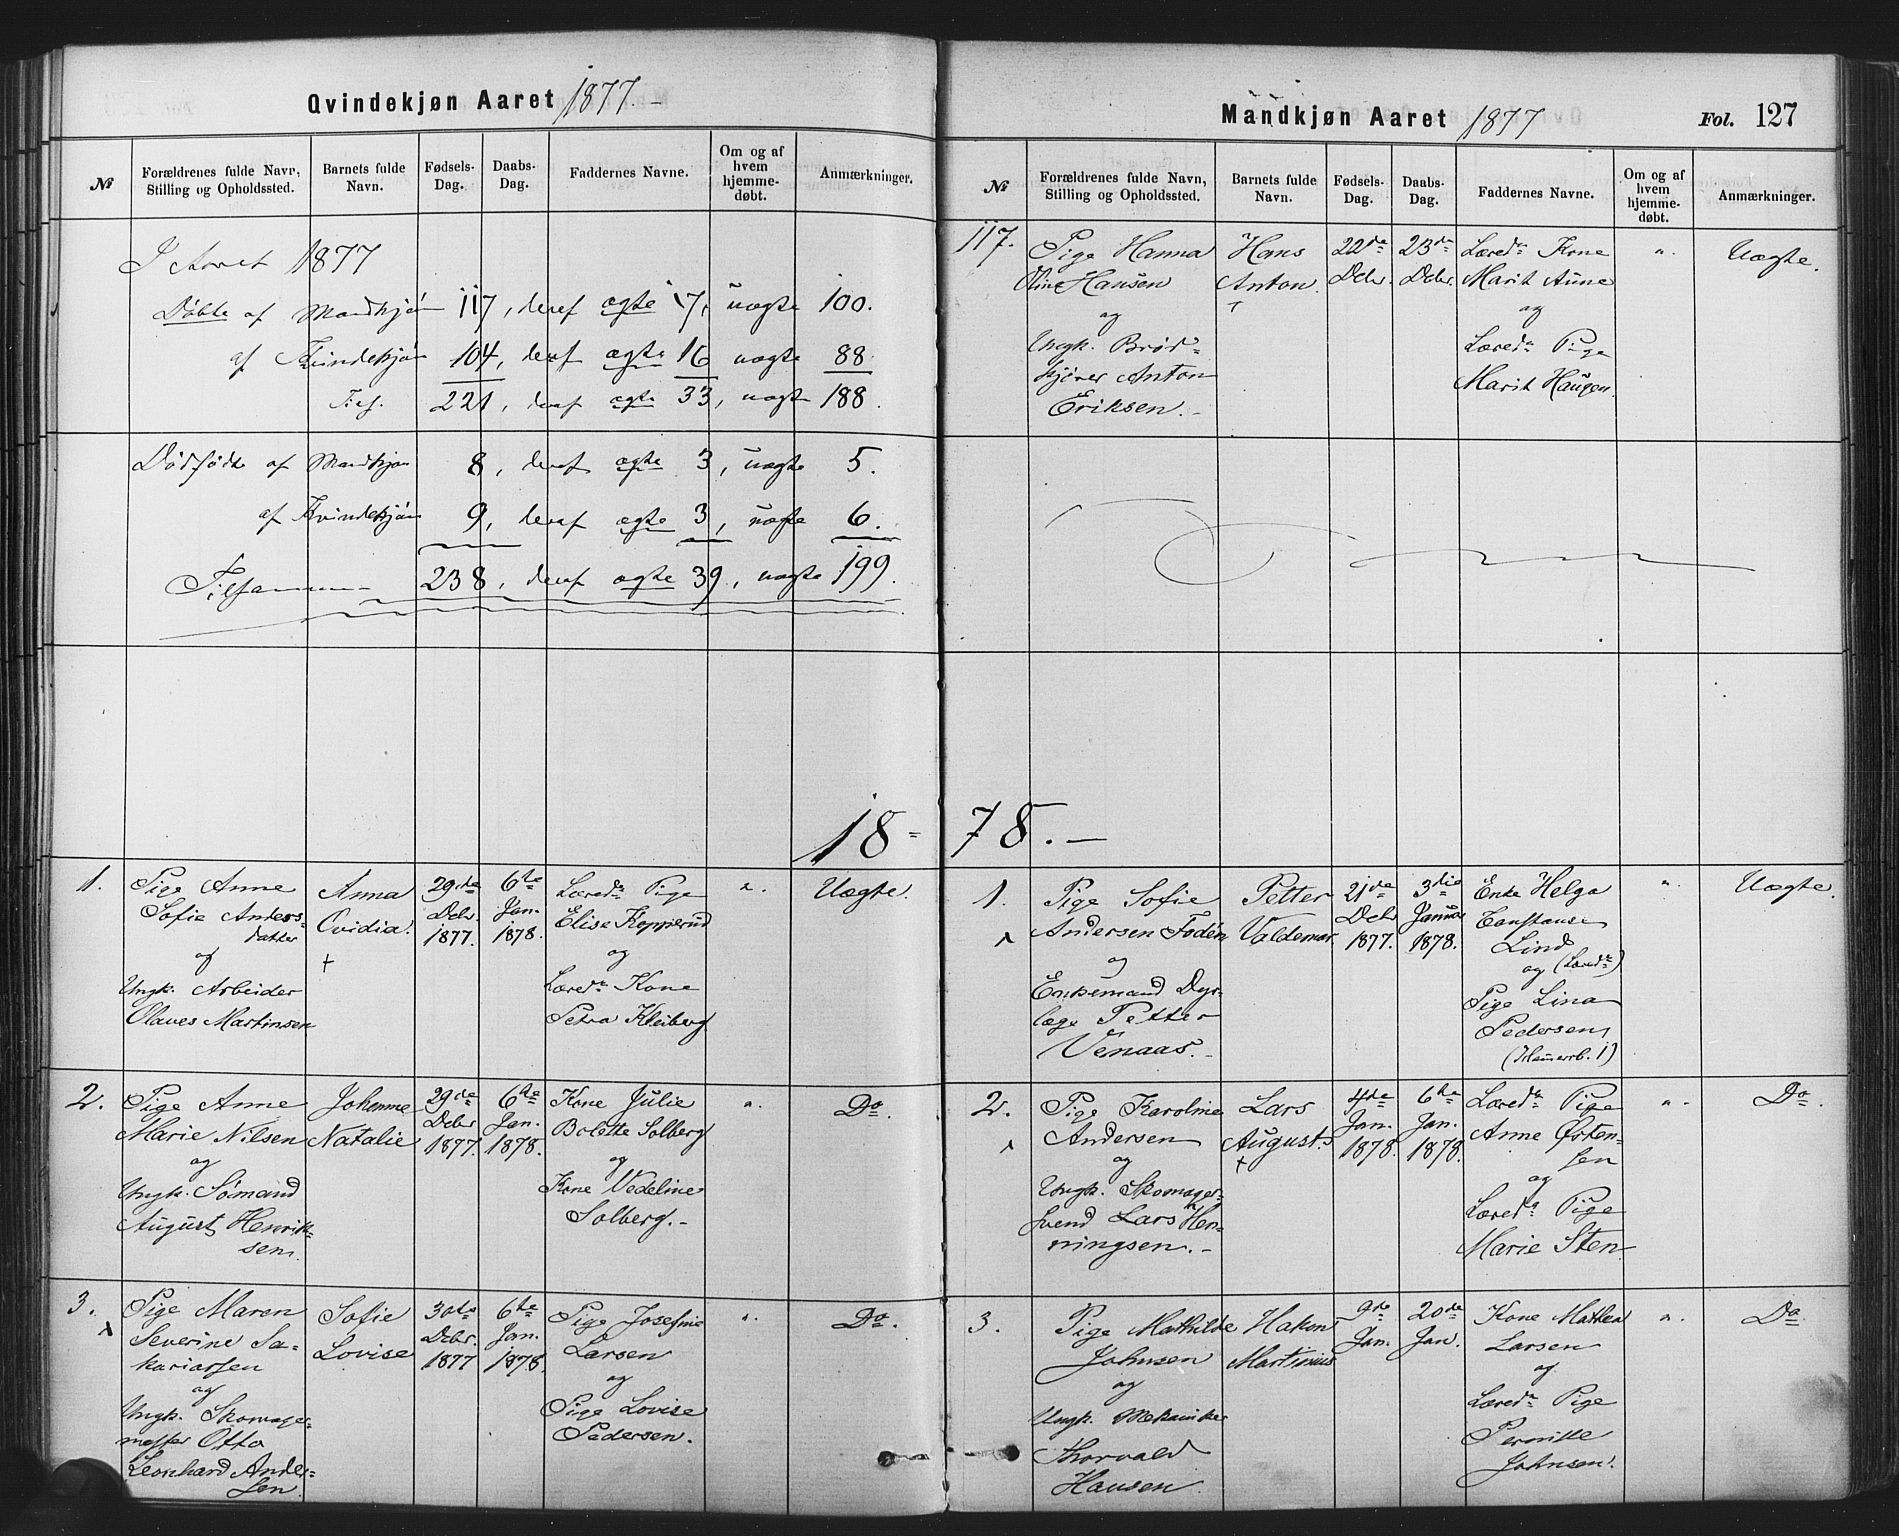 Qvindekjøn Aaret 1877.
№
Forældrenes fulde Navn, Stilling og Opholdssted.
Barnets fulde Navn.
Fødsels-Dag.
Daabs-Dag.
Faddernes Navne.
Om og af hvem hjemme-døbt.
Anmærkninger.
I Aaret 1877
Døbte af Mandkjøn 117, deraf ægte 17, uægte 100.
af Kvindekjøn 104, deraf ægte 16 uægte 88
221, deraf ægte 33, uægte 188.
Dødfødte af Mandkjøn 8, deraf ægte 3, uægte 5.
af Kvindekjøn 9, deraf ægte 3, uægte 6.
Tilsammen 238, deraf ægte 39, uægte 199.
18=
1.
Pige Anne
Sofie Anders-
datter
og
Ungk. Arbeider
Olaves Martinsen
Anna
Ovidia.
+
29de
Debr.
1877.
6te
Jan.
1878.
Læreda Pige
Elise Kopperud
og
Læreda Kone
Petra Kleiberg
".
Uægte.
2.
Pige Anne
Marie Nilsen
og
Ungk. Sømand
August Henrik-
sen.
Johanne
Natalie
29de
Debr.
1877.
6te
Jan.
1878.
Kone Julie
Bolette Solberg
og
Kone Vedeline
Solberg.-
".
Do.
3.
Pige Maren
Severine Sa-
kariassen
og
Ungk. Skomager-
mester Otto
Leonhard Ander-
sen.
Sofie
Lovise
30te
Debr.
1877
6te
Jan.
1878.
Pige Josefine
Larsen
og
Pige Lovise
Pedersen.
".
Do.
Mandkjøn Aaret 1877
Fol. 127
№
Forældrenes fulde Navn, Stilling og Opholdssted.
Barnets fulde Navn.
Fødsels-Dag.
Daabs-Dag.
Faddernes Navne.
Om og af hvem hjemme-døbt.
Anmærkninger.
117.
Pige Hanna
Oline Hansen
og
Ungk. Brød-
kjører Anton
Eriksen.-
Hans
Anton
+
22de
Debr.
23de
Debr.
Læreda Kone
Marit Aune
og
Læreda Pige
Marit Haugen.
".
Uægte.
78.-
1.
Pige Sofie
Andersen Foden
og
Enkemand Dyr-
læge Petter
Venaas.-
Petter
Valdemar.
21de
Debr
1877.
3die
Januar
1878.
Enke Helga
Constanse
Lind
og (Læreda)
Pige Lina
Pedersen
".
Uægte.
2.
Pige Karoline
Andersen
og
Ungk. Skomager-
svend Lars Hen-
ningsen.-
Lars
August.
+
4de
Jan.
1878.
6te
Jan.
1878.
Læreda Pige
Anne Østen-
sen
og
Læreda Pige
Marie Sten
".
Do.
3.
Pige Mathilde
Johnsen
og
Ungk. Mekaniker
Thorvald
Hansen.
Hakon
Martinius
9de
Jan.
20de
Jan.
Kone Mathea
Larsen
og
Læreda Pige
Pernille
Johnsen.
".
Do.